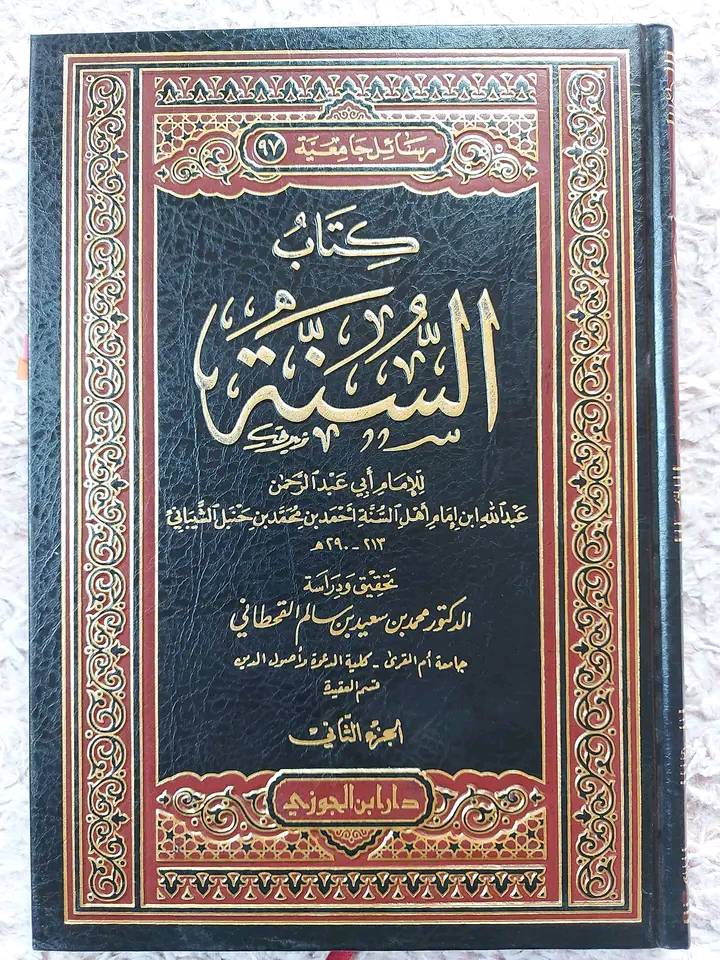 رسائل جامعية ٩٧
كِتَابُ
السُّنَّة
للإمام أبي عبد الرحمن
عبد الله ابن إمام أهل السنة أحمد بن محمد بن حنبل الشيباني
٢١٣ - ٢٩٠ هـ
تحقيق ودراسة
الدكتور محمد بن سعيد بن سالم القحطاني
جامعة أم القرى - كلية الدعوة وأصول الدين
قسم العقيدة
الجزء الثاني
دار ابن الجوزي